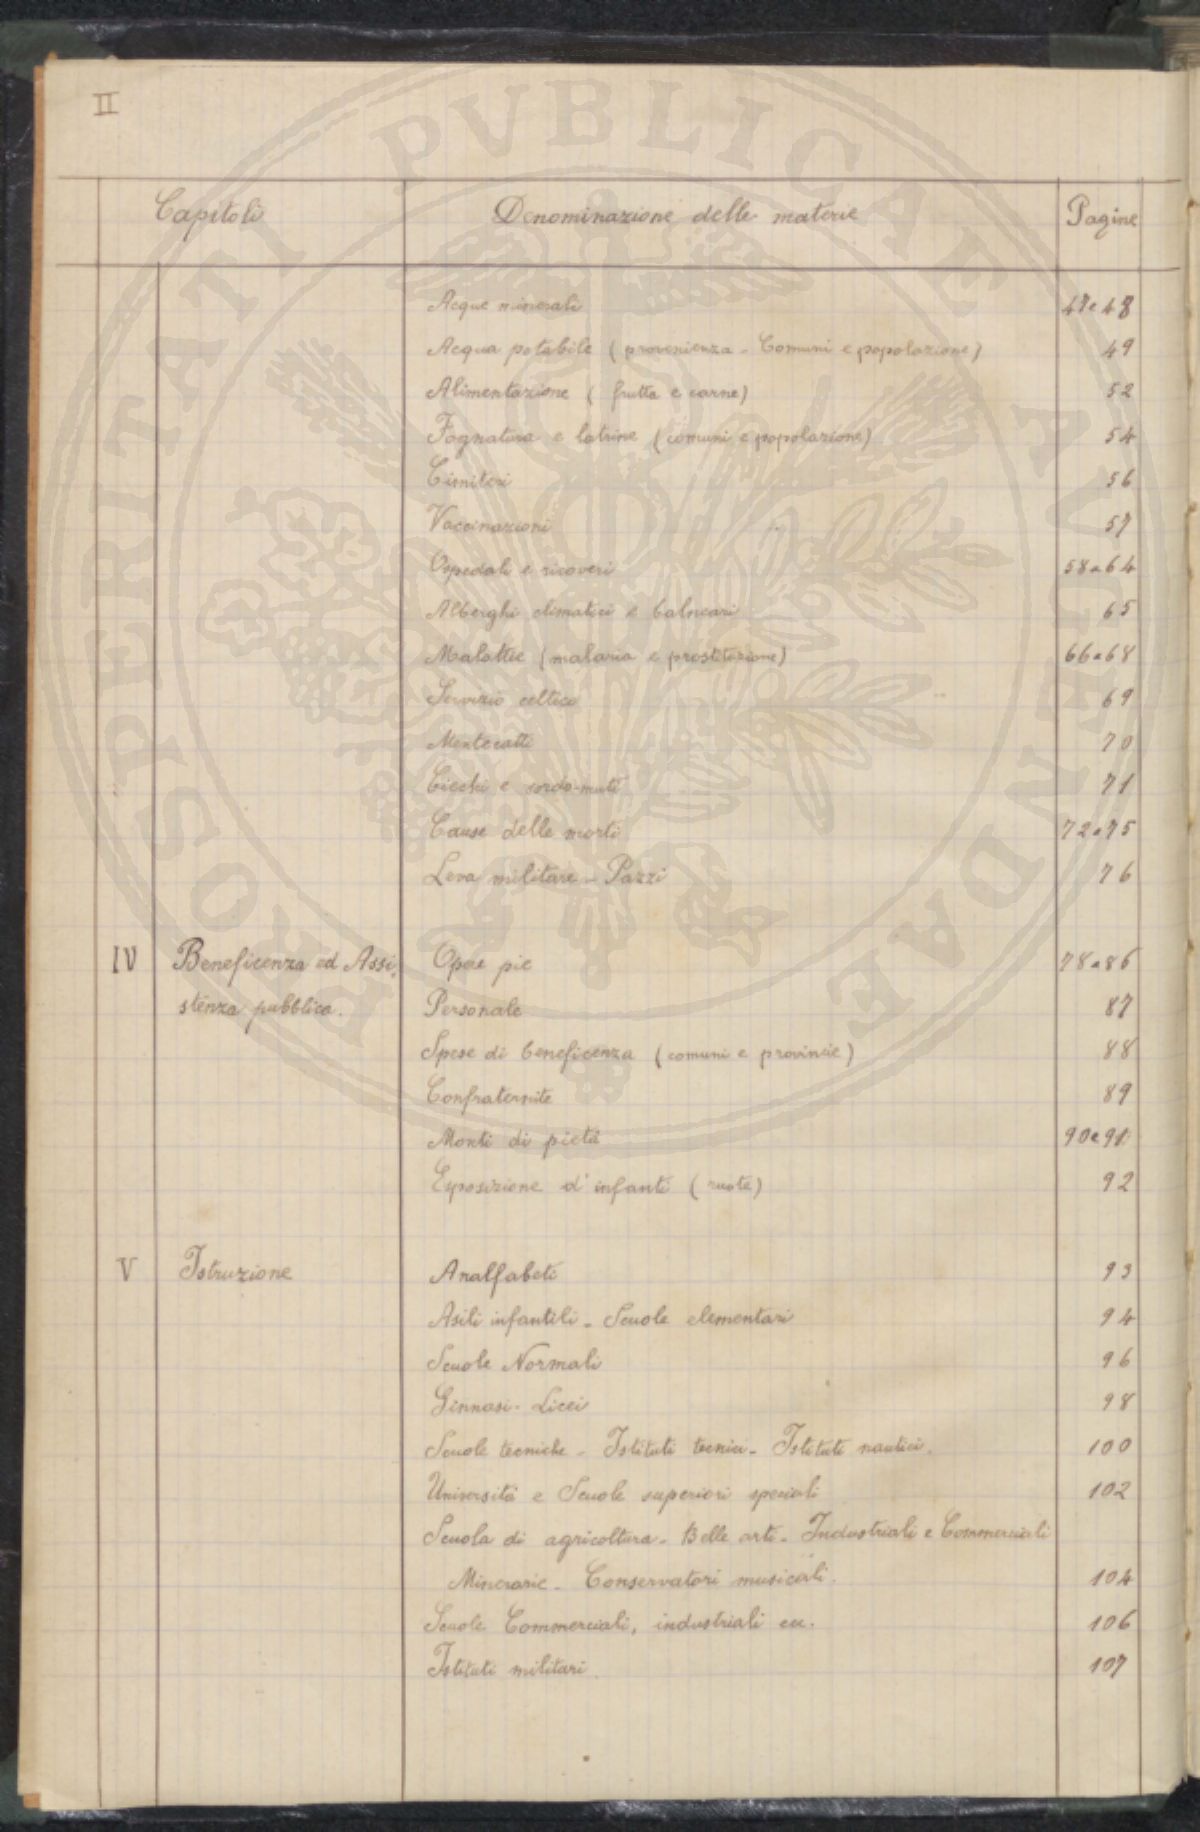 II
Capitoli Denominazione delle materie Pagine
Acque minerali 47 e 48
Acqua potabile (provenienza - Comuni e popolazione) 49
Alimentazione (frutta e carne) 52
Fognatura e latrine (comuni e popolazione) 54
Cimiteri 56
Vaccinazioni 57
Ospedali e ricoveri 58 a 64
Alberghi climatici e balneari 65
Malattie (malaria e prostituzione) 66 a 68
Servizio celtico 69
Mentecatti 70
Ciechi e sordo-muti 71
Cause delle morti 72 a 75
Leva militare - Pazzi 76
IV Beneficenza ed Assi- Opere pie 78 a 86
stenza pubblica. Personale 87
Spese di beneficenza (comuni e provincie) 88
Confraternite 89
Monti di pietà 90 e 91
Esposizione d'infanti (ruote) 92
V Istruzione Analfabeti 93
Asili infantili - Scuole elementari 94
Scuole Normali 96
Ginnasi - Licei 98
Scuole tecniche - Istituti tecnici - Istituti nautici. 100
Università e Scuole superiori speciali 102
Scuola di agricoltura - Belle arti - Industriali e Commerciali
Minerarie - Conservatori musicali. 104
Scuole Commerciali, industriali ecc. 106
Istituti militari. 107
PUBLICAE AUGENDAE PROSPERITATI